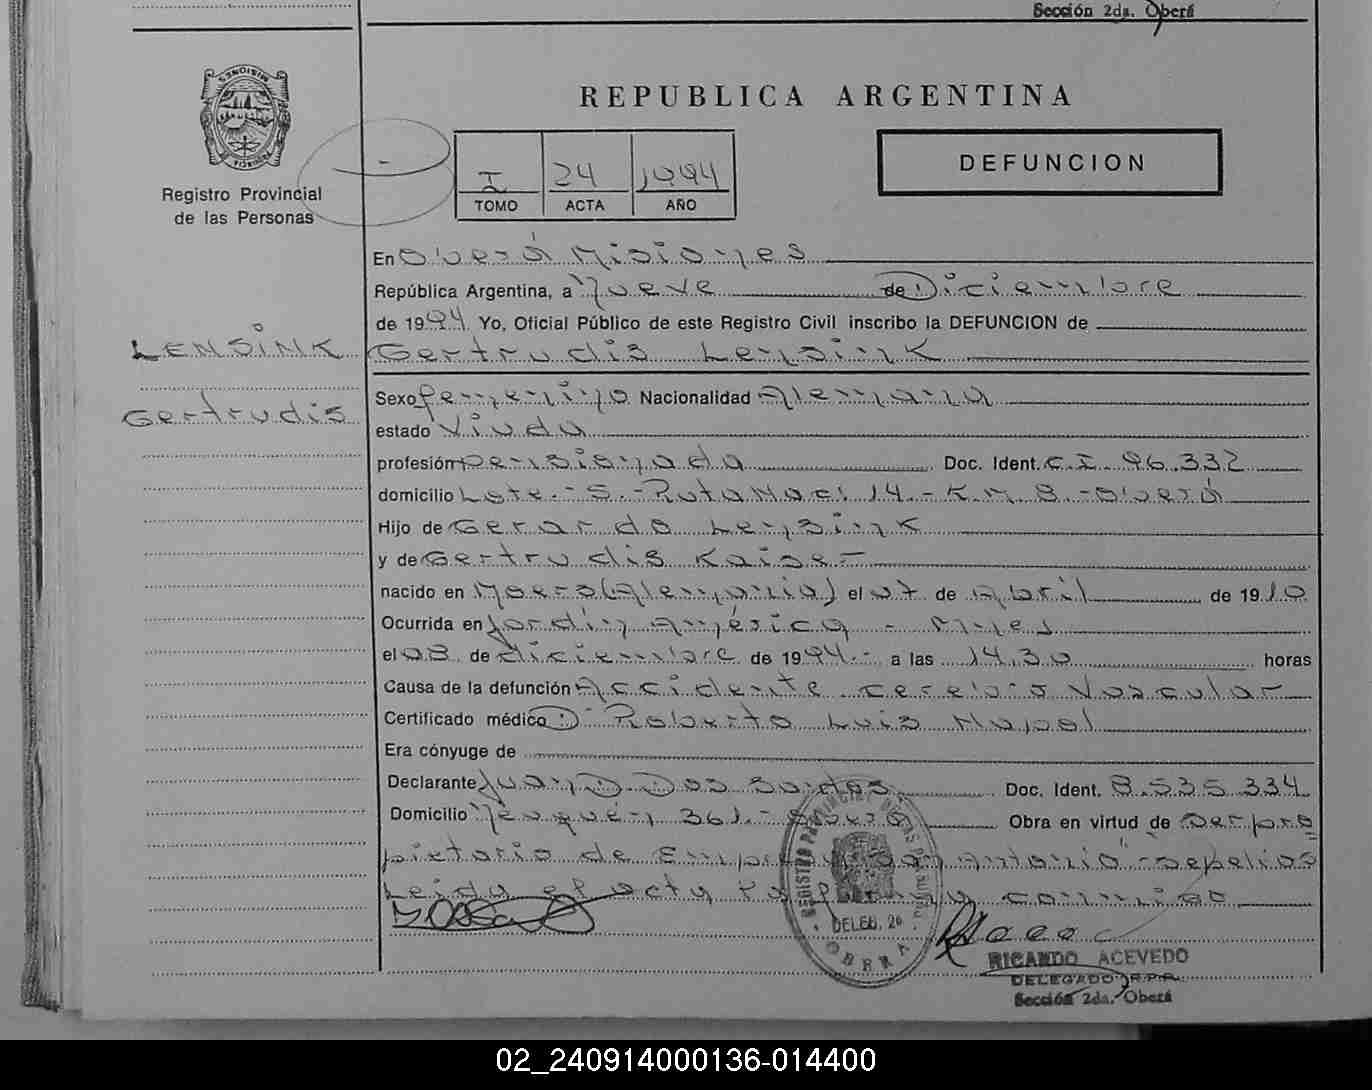 Sección 2da. Oberá
MISIONES
PROVINCIA
Registro Provincial
de las Personas
REPUBLICA ARGENTINA
I 24 1994
TOMO ACTA AÑO
DEFUNCION
LENSINK
Gertrudis
En Oberá Misiones
República Argentina, a Nueve de Diciembre
de 1994 Yo, Oficial Público de este Registro Civil inscribo la DEFUNCION de
Gertrudis Lensink
Sexo femenino Nacionalidad Alemana
estado Viuda
profesión pensionada Doc. Ident. C.I. 96.332
domicilio Lote.-5.-Ruta Nac. 14.- K.M. 8.-Oberá
Hijo de Gerardo Lensink
y de Gertrudis Kaiser
nacido en Moers (Alemania) el 07 de Abril de 1910
Ocurrida en Jardín América - Mnes
el 08 de diciembre de 1994.- a las 14.30 horas
Causa de la defunción Accidente cerebro Vascular
Certificado médico D: Roberto Luis
Era cónyuge de
Declarante Juan D. Dos Santos Doc. Ident. 8.535.334
Domicilio Neuquén 361.- Oberá Obra en virtud de Ser pro
pietario de Empresa San Antonio - sepelios
Leida el acta la firma conmigo
REGISTRO PROVINCIAL DE LAS PERSONAS
DELEG. 2a
OBERA
RICARDO ACEVEDO
DELEGADO R.P.P.
Sección 2da. Oberá
02_240914000136-014400